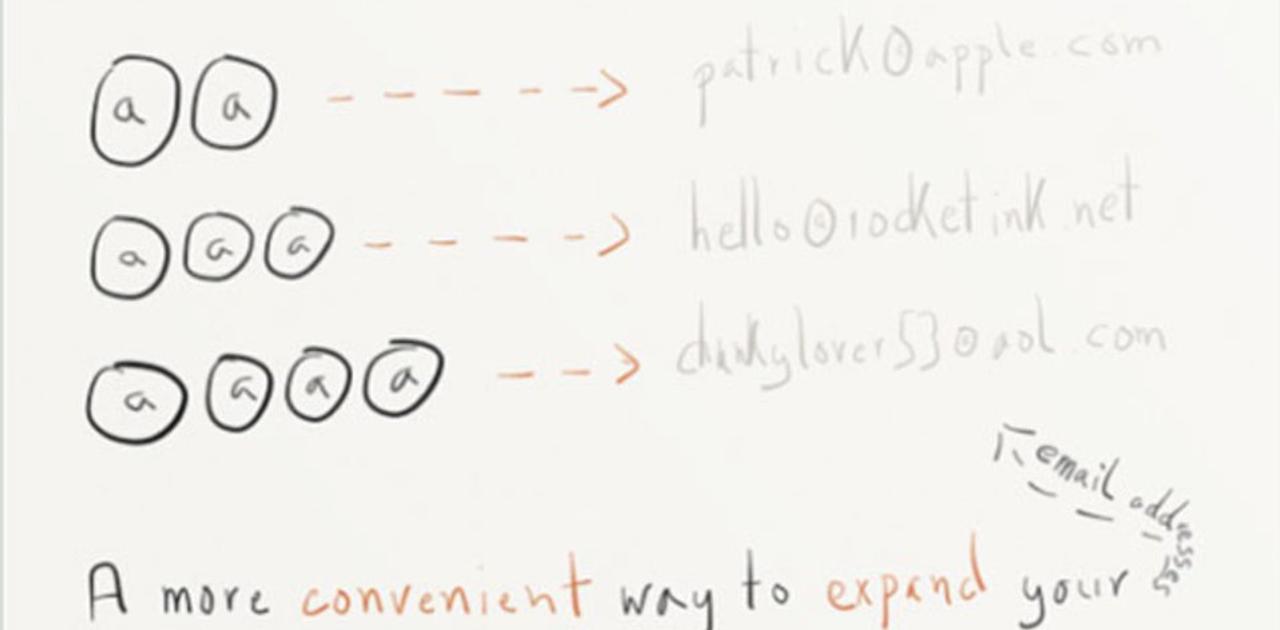 a a patrick@apple.com
a a a hello@rocketink.net
a a a a @aol.com
A more convenient way to expand your email addresses